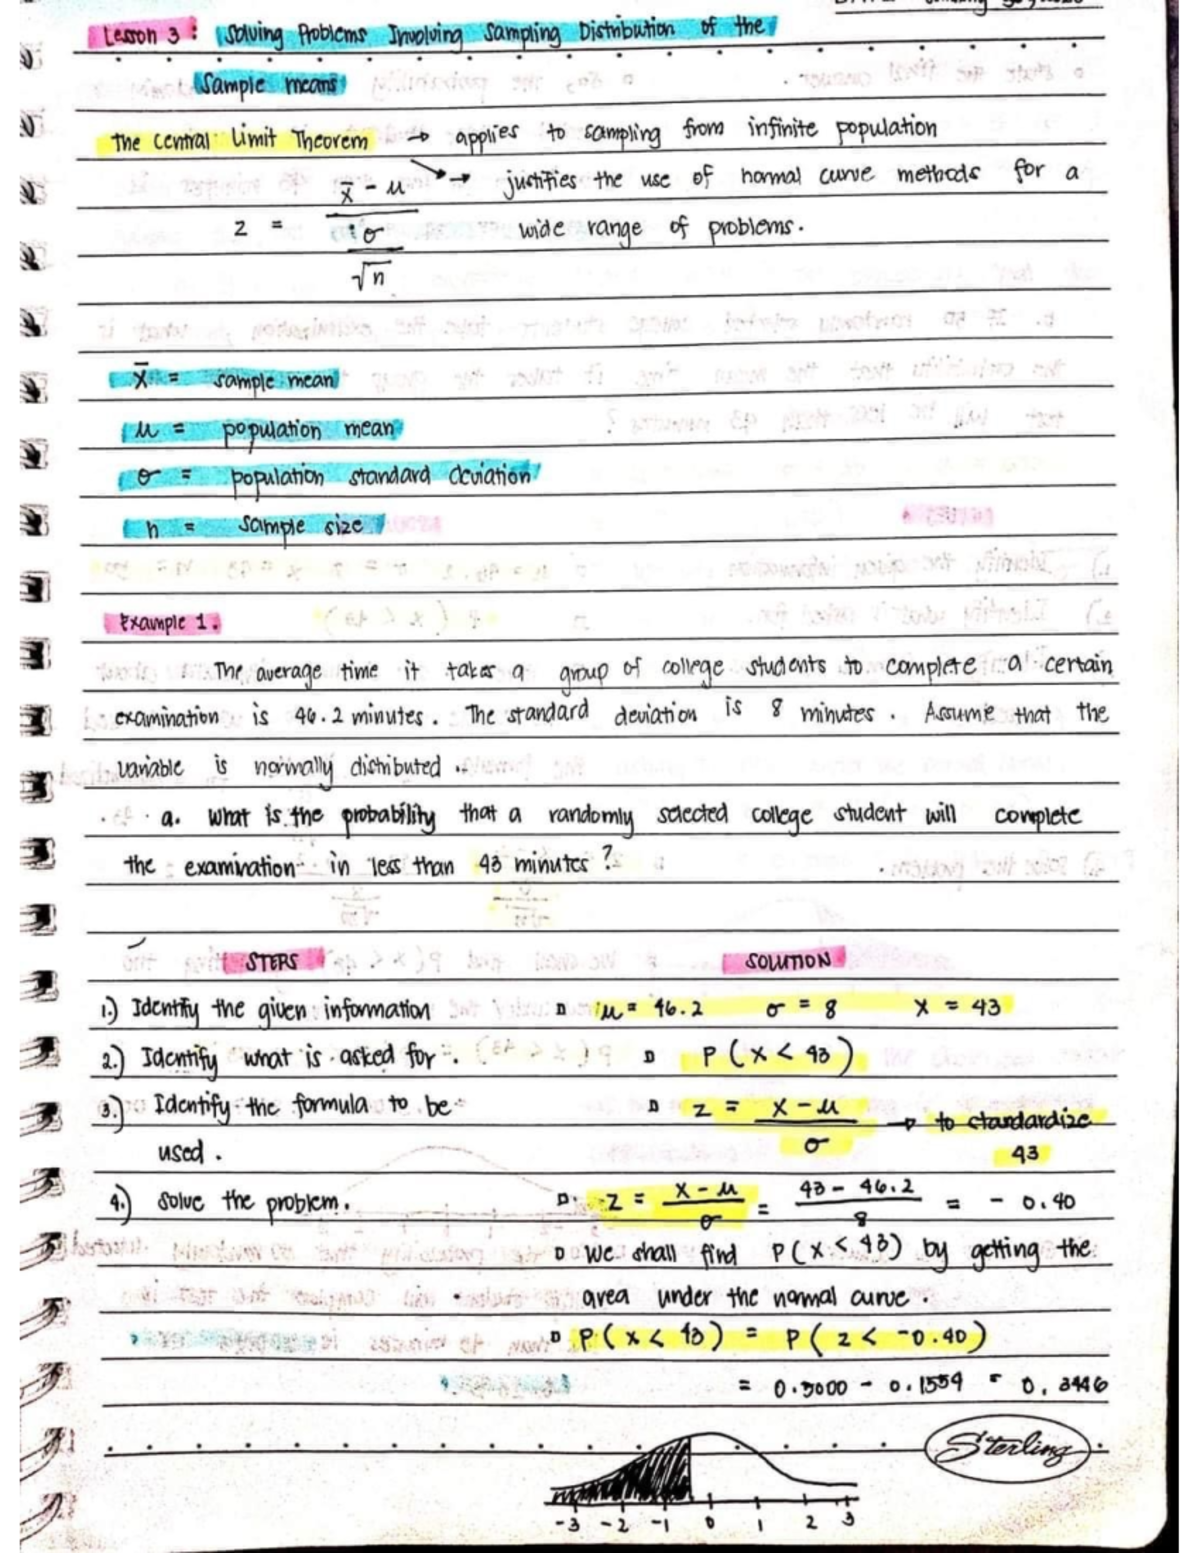 Lesson 3 : Solving Problems Involving Sampling Distribution of the
Sample means
The Central Limit Theorem → applies to sampling from infinite population
→ justifies the use of normal curve methods for a
wide range of problems.
z = x̄ - μ / σ / √n
x̄ = sample mean
μ = population mean
σ = population standard deviation
n = sample size
Example 1.
The average time it takes a group of college students to complete a certain
examination is 46.2 minutes. The standard deviation is 8 minutes. Assume that the
variable is normally distributed.
a. What is the probability that a randomly selected college student will complete
the examination in less than 43 minutes?
STEPS SOLUTION
1.) Identify the given information μ = 46.2 σ = 8 x = 43
2.) Identify what is asked for. P(x < 43)
3.) Identify the formula to be z = x - μ / σ → to standardize
used. 43
4.) Solve the problem. z = x - μ / σ = 43 - 46.2 / 8 = - 0.40
We shall find P(x < 43) by getting the
area under the normal curve
P(x < 43) = P(z < -0.40)
= 0.5000 - 0.1554 = 0.3446
Sterling
-3 -2 -1 0 1 2 3